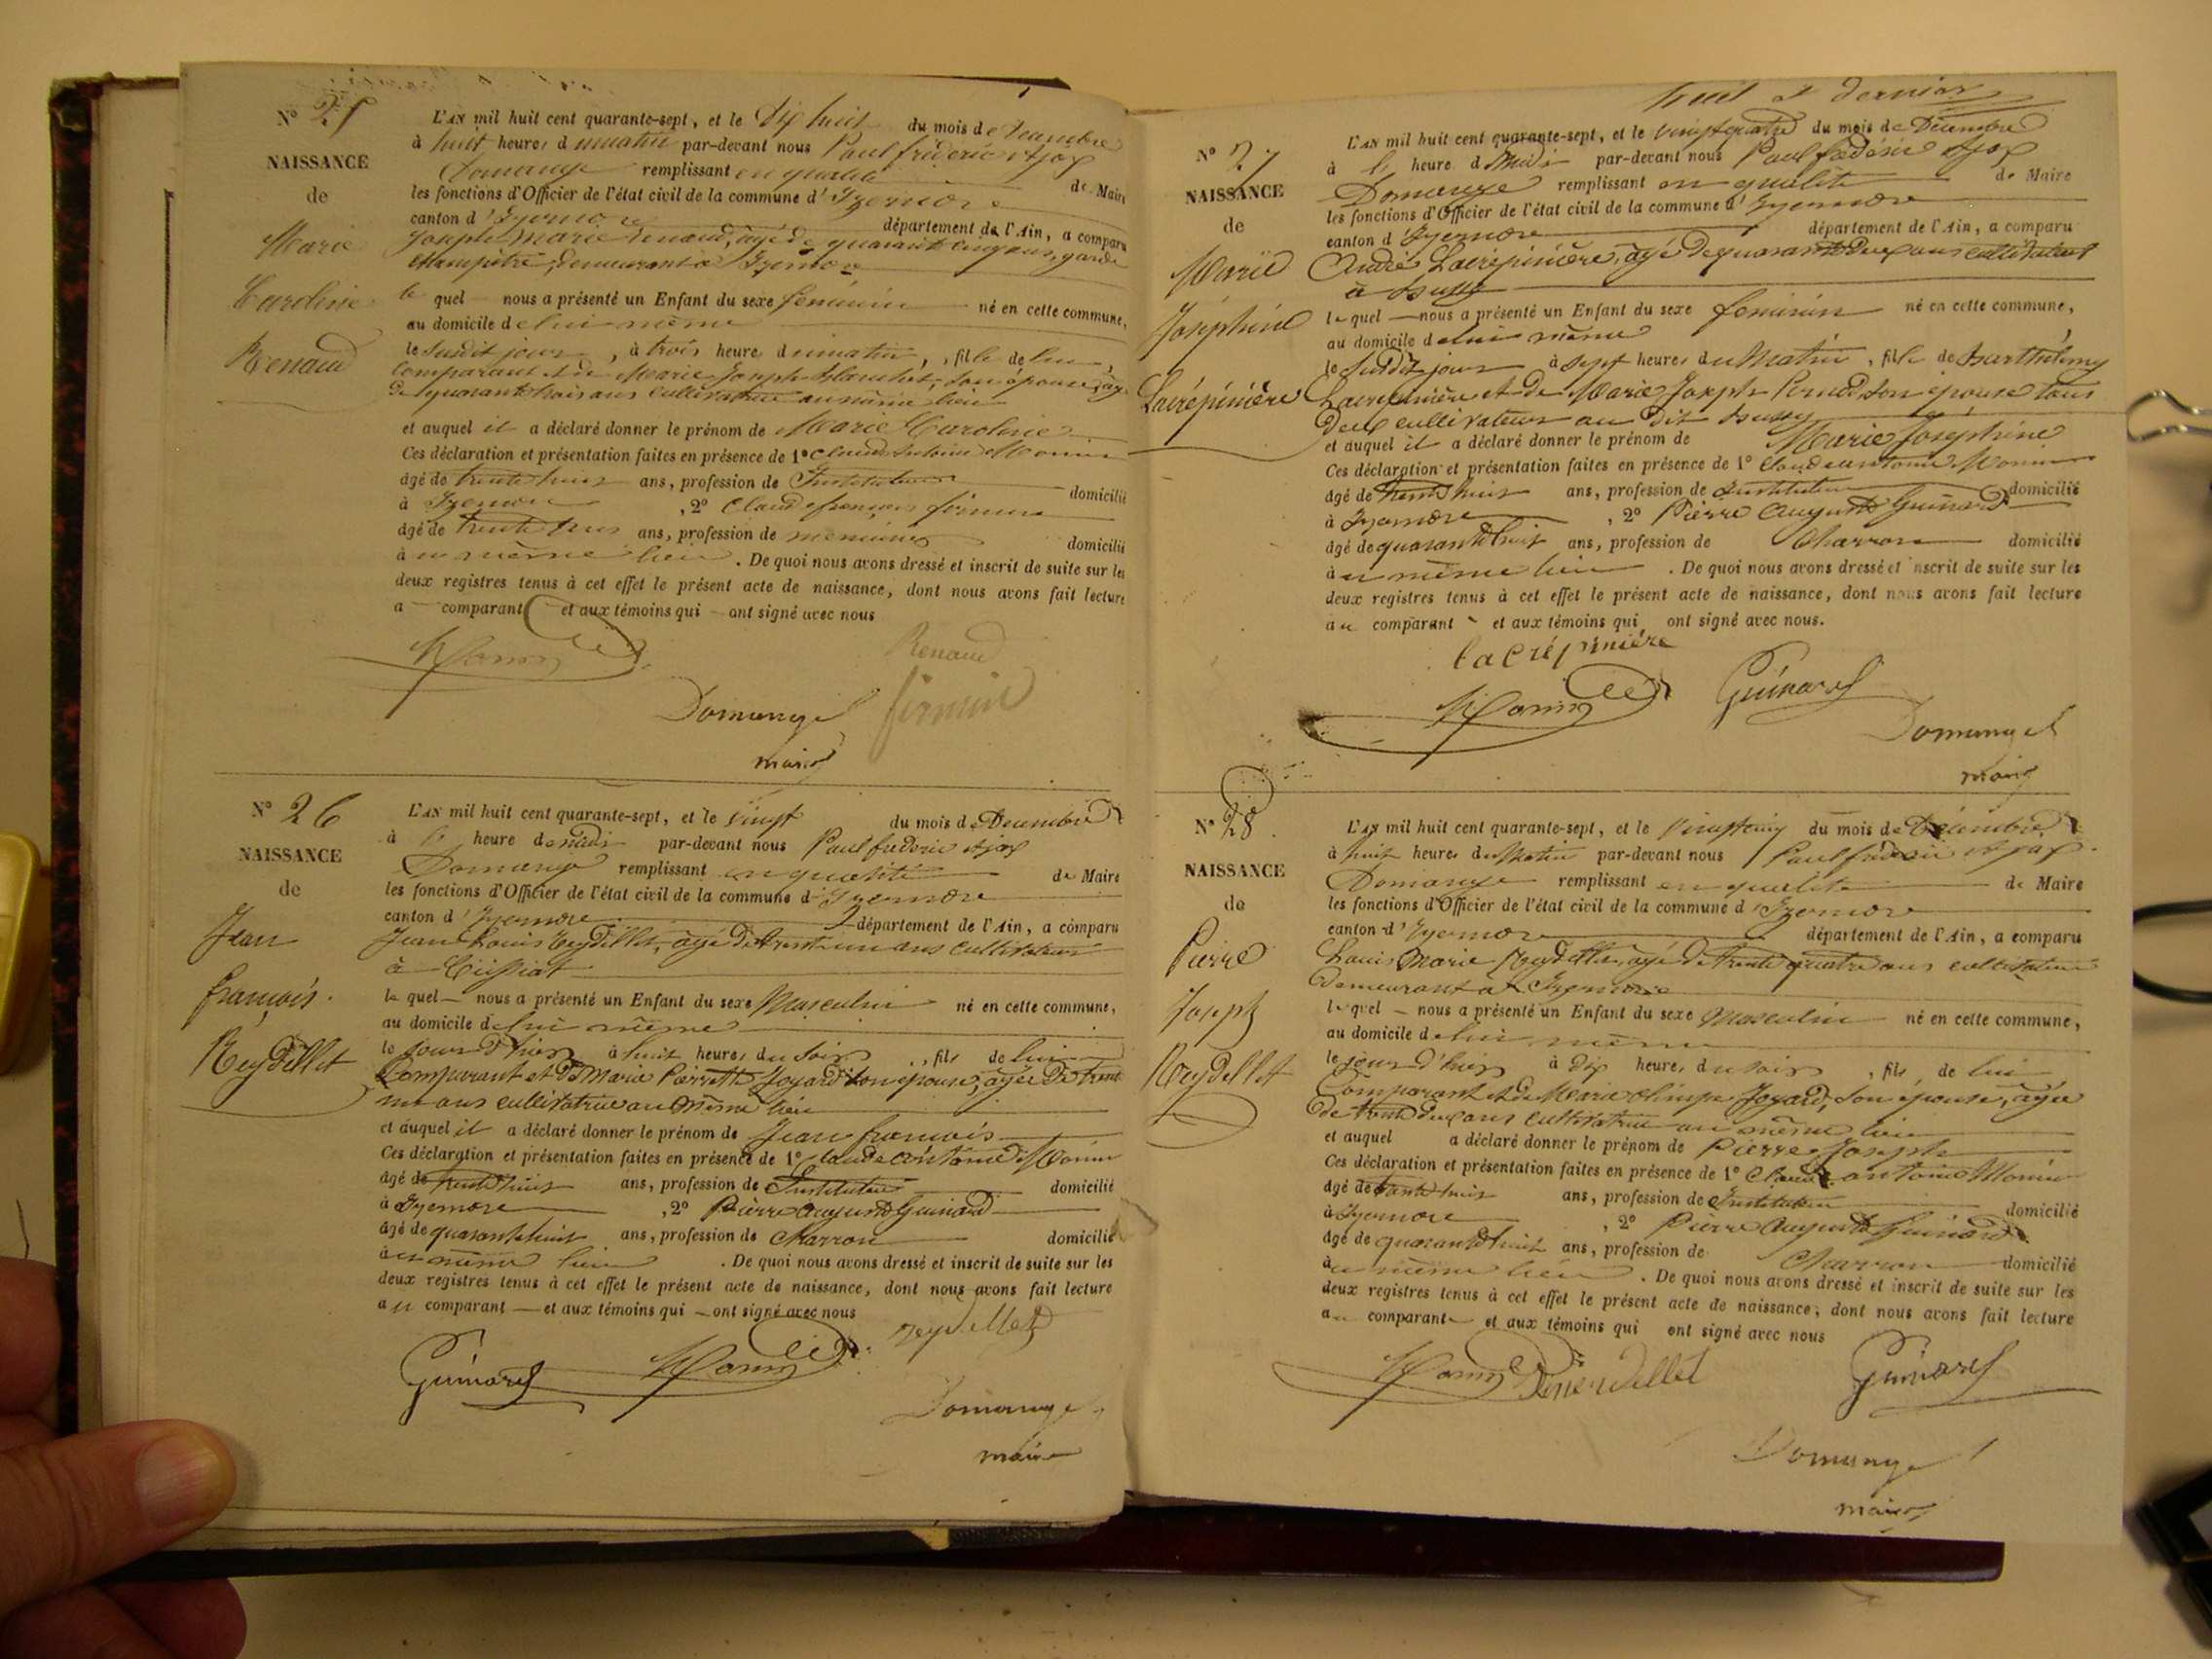 N° 25
NAISSANCE
de
Marie
Caroline
Renaud
L'AN mil huit cent quarante-sept, et le dix huit du mois de Decembre
à huit heures du matin par-devant nous Paul frédéric Ajax
Domange remplissant en qualité de Maire
les fonctions d'Officier de l'état civil de la commune d'Izernore
canton d'Izernore département de l'Ain, a comparu
Joseph Marie Renaud, âgé de quarante cinq ans, garde
champêtre, demeurant à Izernore
le quel nous a présenté un Enfant du sexe féminin né en cette commune,
au domicile de lui même
le susdit jour, à trois heures du matin, fille de lui
comparant et de Marie Joseph Blanchet, son épouse, agée
de quarante trois ans cultivatrice au même lieu
et auquel il a déclaré donner le prénom de Marie Caroline
Ces déclaration et présentation faites en présence de 1° Claude Antoine Monin
âgé de trente huit ans, profession de Instituteur domicilié
à Izernore, 2° Claude françois firmin
âgé de trente ans, profession de menuisier domicilié
à u même lieu. De quoi nous avons dressé et inscrit de suite sur les
deux registres tenus à cet effet le présent acte de naissance, dont nous avons fait lecture
a comparant et aux témoins qui ont signé avec nous
Monin Renaud
Domange firmin
maire
N° 26
NAISSANCE
de
Jean
françois
Reydellet
L'AN mil huit cent quarante-sept, et le vingt du mois de Decembre
à heure de midi par-devant nous Paul frédéric Ajax
Domange remplissant en qualité de Maire
les fonctions d'Officier de l'état civil de la commune d'Izernore
canton d'Izernore département de l'Ain, a comparu
Jean Louis Reydellet, âgé de trente un ans cultivateur
à Ceissiat
le quel nous a présenté un Enfant du sexe Masculin né en cette commune,
au domicile de lui même
le jour d'hier à huit heures du soir, fils de lui
Comparant et de Marie Pierrette Joyard son épouse, agée de trente
un ans cultivatrice au même lieu
et auquel il a déclaré donner le prénom de Jean françois
Ces déclaration et présentation faites en présence de 1° Claude Antoine Monin
âgé de trente huit ans, profession de Instituteur domicilié
à Izernore, 2° Pierre Auguste Guinard
âgé de quarante huit ans, profession de Charron domicilié
à u même lieu. De quoi nous avons dressé et inscrit de suite sur les
deux registres tenus à cet effet le présent acte de naissance, dont nous avons fait lecture
au comparant et aux témoins qui ont signé avec nous
Guinard Monin reydellet
Domange
maire
huit et dernier
N° 27
NAISSANCE
de
Marie
Joséphine
Lacrépinière
L'AN mil huit cent quarante-sept, et le vingt quatre du mois de Décembre
à heure de Midi par-devant nous Paul frédéric Ajax
Domange remplissant en qualité de Maire
les fonctions d'Officier de l'état civil de la commune d'Izernore
canton d'Izernore département de l'Ain, a comparu
André Lacrépinière, âgé de quarante deux ans cultivateur
à Bussy
lequel nous a présenté un Enfant du sexe feminin né en cette commune,
au domicile de lui même
le susdit jour à sept heures du Matin, fille de Barthélemy
Lacrépinière et de Marie Joseph son épouse tous
deux cultivateurs au dit Bussy
et auquel il a déclaré donner le prénom de Marie Joséphine
Ces déclaration et présentation faites en présence de 1° Claude antoine Monin
âgé de trente huit ans, profession de Instituteur domicilié
à Izernore, 2° Pierre Auguste Guinard
âgé de quarante huit ans, profession de Charron domicilié
à u même lieu. De quoi nous avons dressé et inscrit de suite sur les
deux registres tenus à cet effet le présent acte de naissance, dont nous avons fait lecture
au comparant et aux témoins qui ont signé avec nous.
lacrépinière
Monin Guinard
Domange
maire
N° 28
NAISSANCE
de
Pierre
Joseph
Reydellet
L'AN mil huit cent quarante-sept, et le vingt cinq du mois de Décembre
à huit heures du Matin par-devant nous Paul frédéric Ajax
Domange remplissant en qualité de Maire
les fonctions d'Officier de l'état civil de la commune d'Izernore
canton d'Izernore département de l'Ain, a comparu
Louis Marie Reydellet, âgé de trente quatre ans cultivateur
demeurant à Izernore
lequel nous a présenté un Enfant du sexe Masculin né en cette commune,
au domicile de lui même
le jour d'hier à dix heures du soir, fils de lui
Comparant et de Marie Olimpe Joyard, son épouse, agée
de trente deux ans cultivatrice au même lieu
et auquel a déclaré donner le prénom de Pierre Joseph
Ces déclaration et présentation faites en présence de 1° Claude antoine Monin
âgé de trente huit ans, profession de Instituteur domicilié
à Izernore, 2° Pierre Auguste Guinard
âgé de quarante huit ans, profession de Charron domicilié
à u même lieu. De quoi nous avons dressé et inscrit de suite sur les
deux registres tenus à cet effet le présent acte de naissance, dont nous avons fait lecture
au comparant et aux témoins qui ont signé avec nous
Monin Guinard
Domange
maire